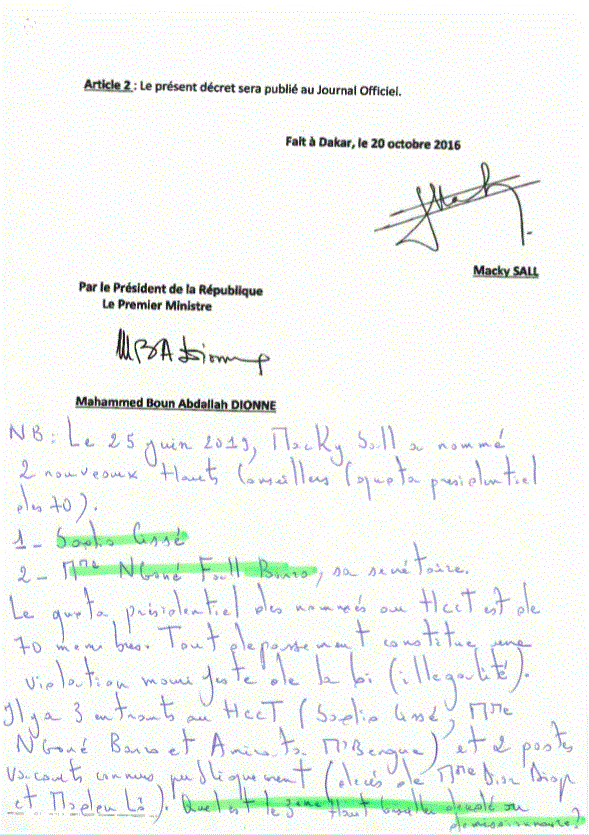 Article 2 : Le présent décret sera publié au Journal Officiel.
Fait à Dakar, le 20 octobre 2016
Macky SALL
Par le Président de la République
Le Premier Ministre
MBA Dionne
Mahammed Boun Abdallah DIONNE
NB : Le 25 juin 2019, Macky Sall a nommé
2 nouveaux Hauts Conseillers (quota presidentiel
des 70).
1 - Sadio Cissé
2 - Mme NGoné Fall Barro, sa secrétaire.
Le quota présidentiel des nommés au HCCT est de
70 membres. Tout depassement constitue une
violation manifeste de la loi (illegalité).
Il y a 3 entrants au HCCT (Sadio Cissé, Mme
NGoné Barro et Aminata M'Bengue) et 2 postes
vacants connus publiquement (decés de Mme Diop
et). Quel est le 3eme Haut Conseiller decedé ou
demissionnaire?